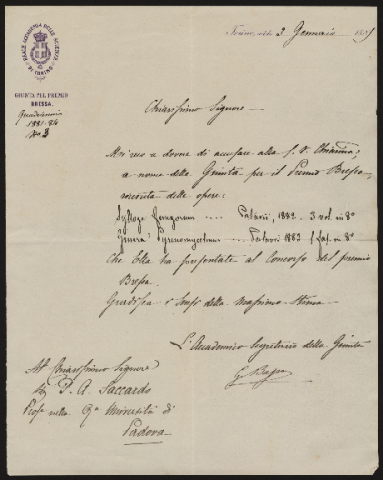 REALE ACCADEMIA DELLE SCIENZE DI TORINO
GIUNTA PEL PREMIO
BRESSA.
Quadriennio
1881-84
N° 3
Torino, addì 3 Gennaio 1885
Chiarissimo Signore
dovere di accusare alla S. V. Chiarma,
a nome della Giunta per il Premio Bressa
ricevuta delle opere:
Sylloge Fungorum .... Patavii, 1882 - 3 vol. in 8°
Genera Pyrenomycetum .... Patavii 1883 1 fasc. in 8°
Che Ella ha presentate al Concorso del premio
Bressa.
Gradisca i sensi della massima stima
L'Accademico Segretario della Giunta
Al Chiarissimo Signore
P. A. Saccardo
Profe nella Ra Università di
Padova